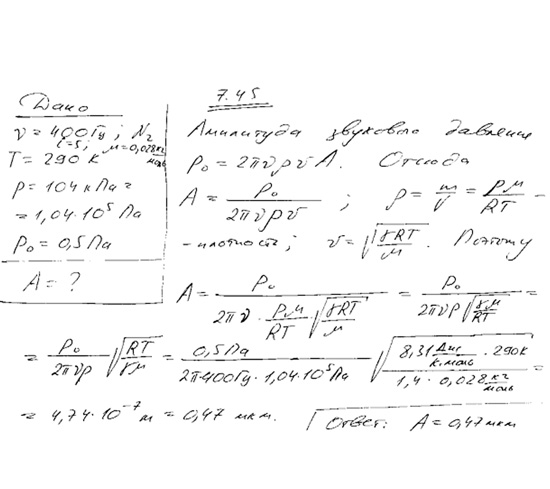 7.45
Дано
ν = 400 Гц; N₂
i=5; μ=0,028 кг/моль
T = 290 К
p = 104 кПа =
= 1,04·10⁵ Па
p₀ = 0,5 Па
A = ?
Амплитуда звукового давления
p₀ = 2πνρυA. Отсюда
A = p₀/(2πνρυ); ρ = m/V = pμ/RT –
– плотность; υ = √(γRT/μ). Поэтому
A = p₀/(2πν · pμ/RT √(γRT/μ)) = p₀/(2πνp√(γμ/RT)) =
= p₀/(2πνp) √(RT/γμ) = 0,5 Па/(2π·400 Гц·1,04·10⁵ Па) √((8,31 Дж/К·моль · 290 К)/(1,4 · 0,028 кг/моль)) =
= 4,74·10⁻⁷ м = 0,47 мкм. Ответ: A = 0,47 мкм